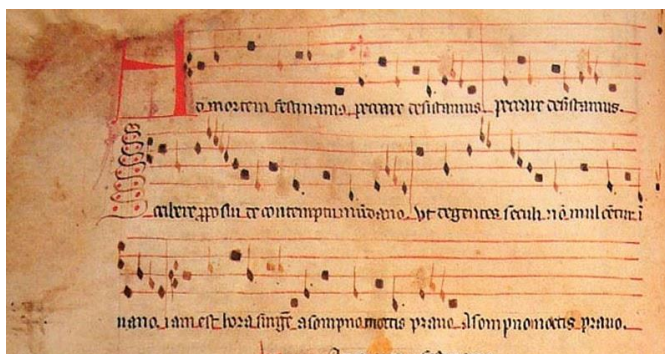 Ad mortem festinamꝰ peccare desistamus peccare desistamus.
Scribere ꝓposui de contemptu mūdano Vt degentes seculi nō mulcētur ī
uano iam est hora surgē a sompno mortis prauo. A sompno mortis prauo.